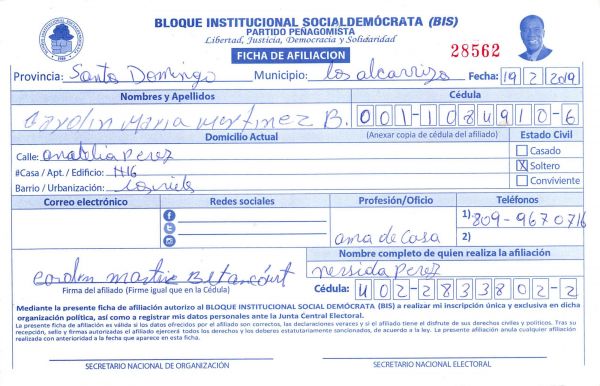 BLOQUE INSTITUCIONAL SOCIALDEMÓCRATA (BIS)
PARTIDO PEÑAGOMISTA
Libertad, Justicia, Democracia y Solidaridad
FICHA DE AFILIACION
28562
Provincia: Santo Domingo Municipio: los alcarrizo Fecha: 19 2 2019
Nombres y Apellidos Cédula
Carolin Maria Martinez B. 001-1084910-6
Domicilio Actual (Anexar copia de cédula del afiliado) Estado Civil
Calle: anatalia Perez Casado
#Casa / Apt. / Edificio: N16 X Soltero
Barrio / Urbanización: Conviviente
Correo electrónico Redes sociales Profesión/Oficio Teléfonos
1) 809-9670716
ama de Casa 2)
Nombre completo de quien realiza la afiliación
Martinez Betancourt nersida Perez
Firma del afiliado (Firme igual que en la Cédula) Cédula: 402-2833802-2
Mediante la presente ficha de afiliación autorizo al BLOQUE INSTITUCIONAL SOCIAL DEMÓCRATA (BIS) a realizar mi inscripción única y exclusiva en dicha
organización política, así como a registrar mis datos personales ante la Junta Central Electoral.
La presente ficha de afiliación es válida si los datos ofrecidos por el afiliado son correctos, las declaraciones veraces y si el afiliado tiene el disfrute de sus derechos civiles y políticos. Tras su
recepción, sello y firmas autorizadas el afiliado ejercerá todos los derechos y los deberes estatutariamente sancionados, de acuerdo a la ley. La presente afiliación anula cualquier afiliación
realizada con anterioridad a la fecha que aparece en esta ficha.
SECRETARIO NACIONAL DE ORGANIZACIÓN SECRETARIO NACIONAL ELECTORAL